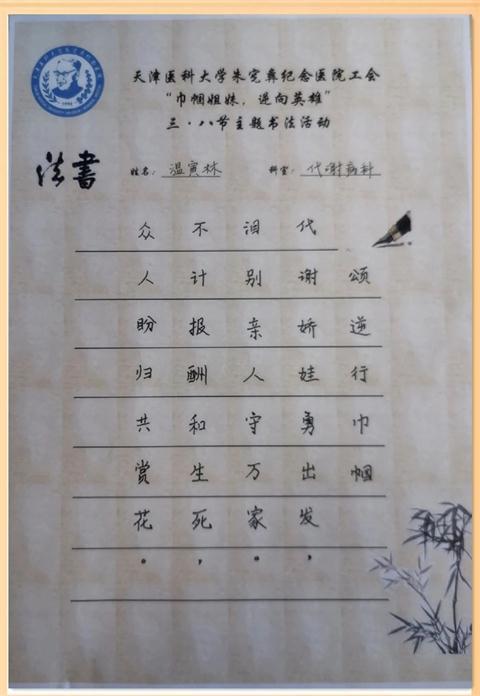 天津医科大学朱宪彝纪念医院工会
“巾帼姐妹，逆向英雄”
三·八节主题书法活动
書法
姓名：温寅林 科室：代谢病科
颂逆行巾帼
代谢娇娃勇出发，
泪别亲人守万家。
不计报酬和生死，
众人盼归共赏花。